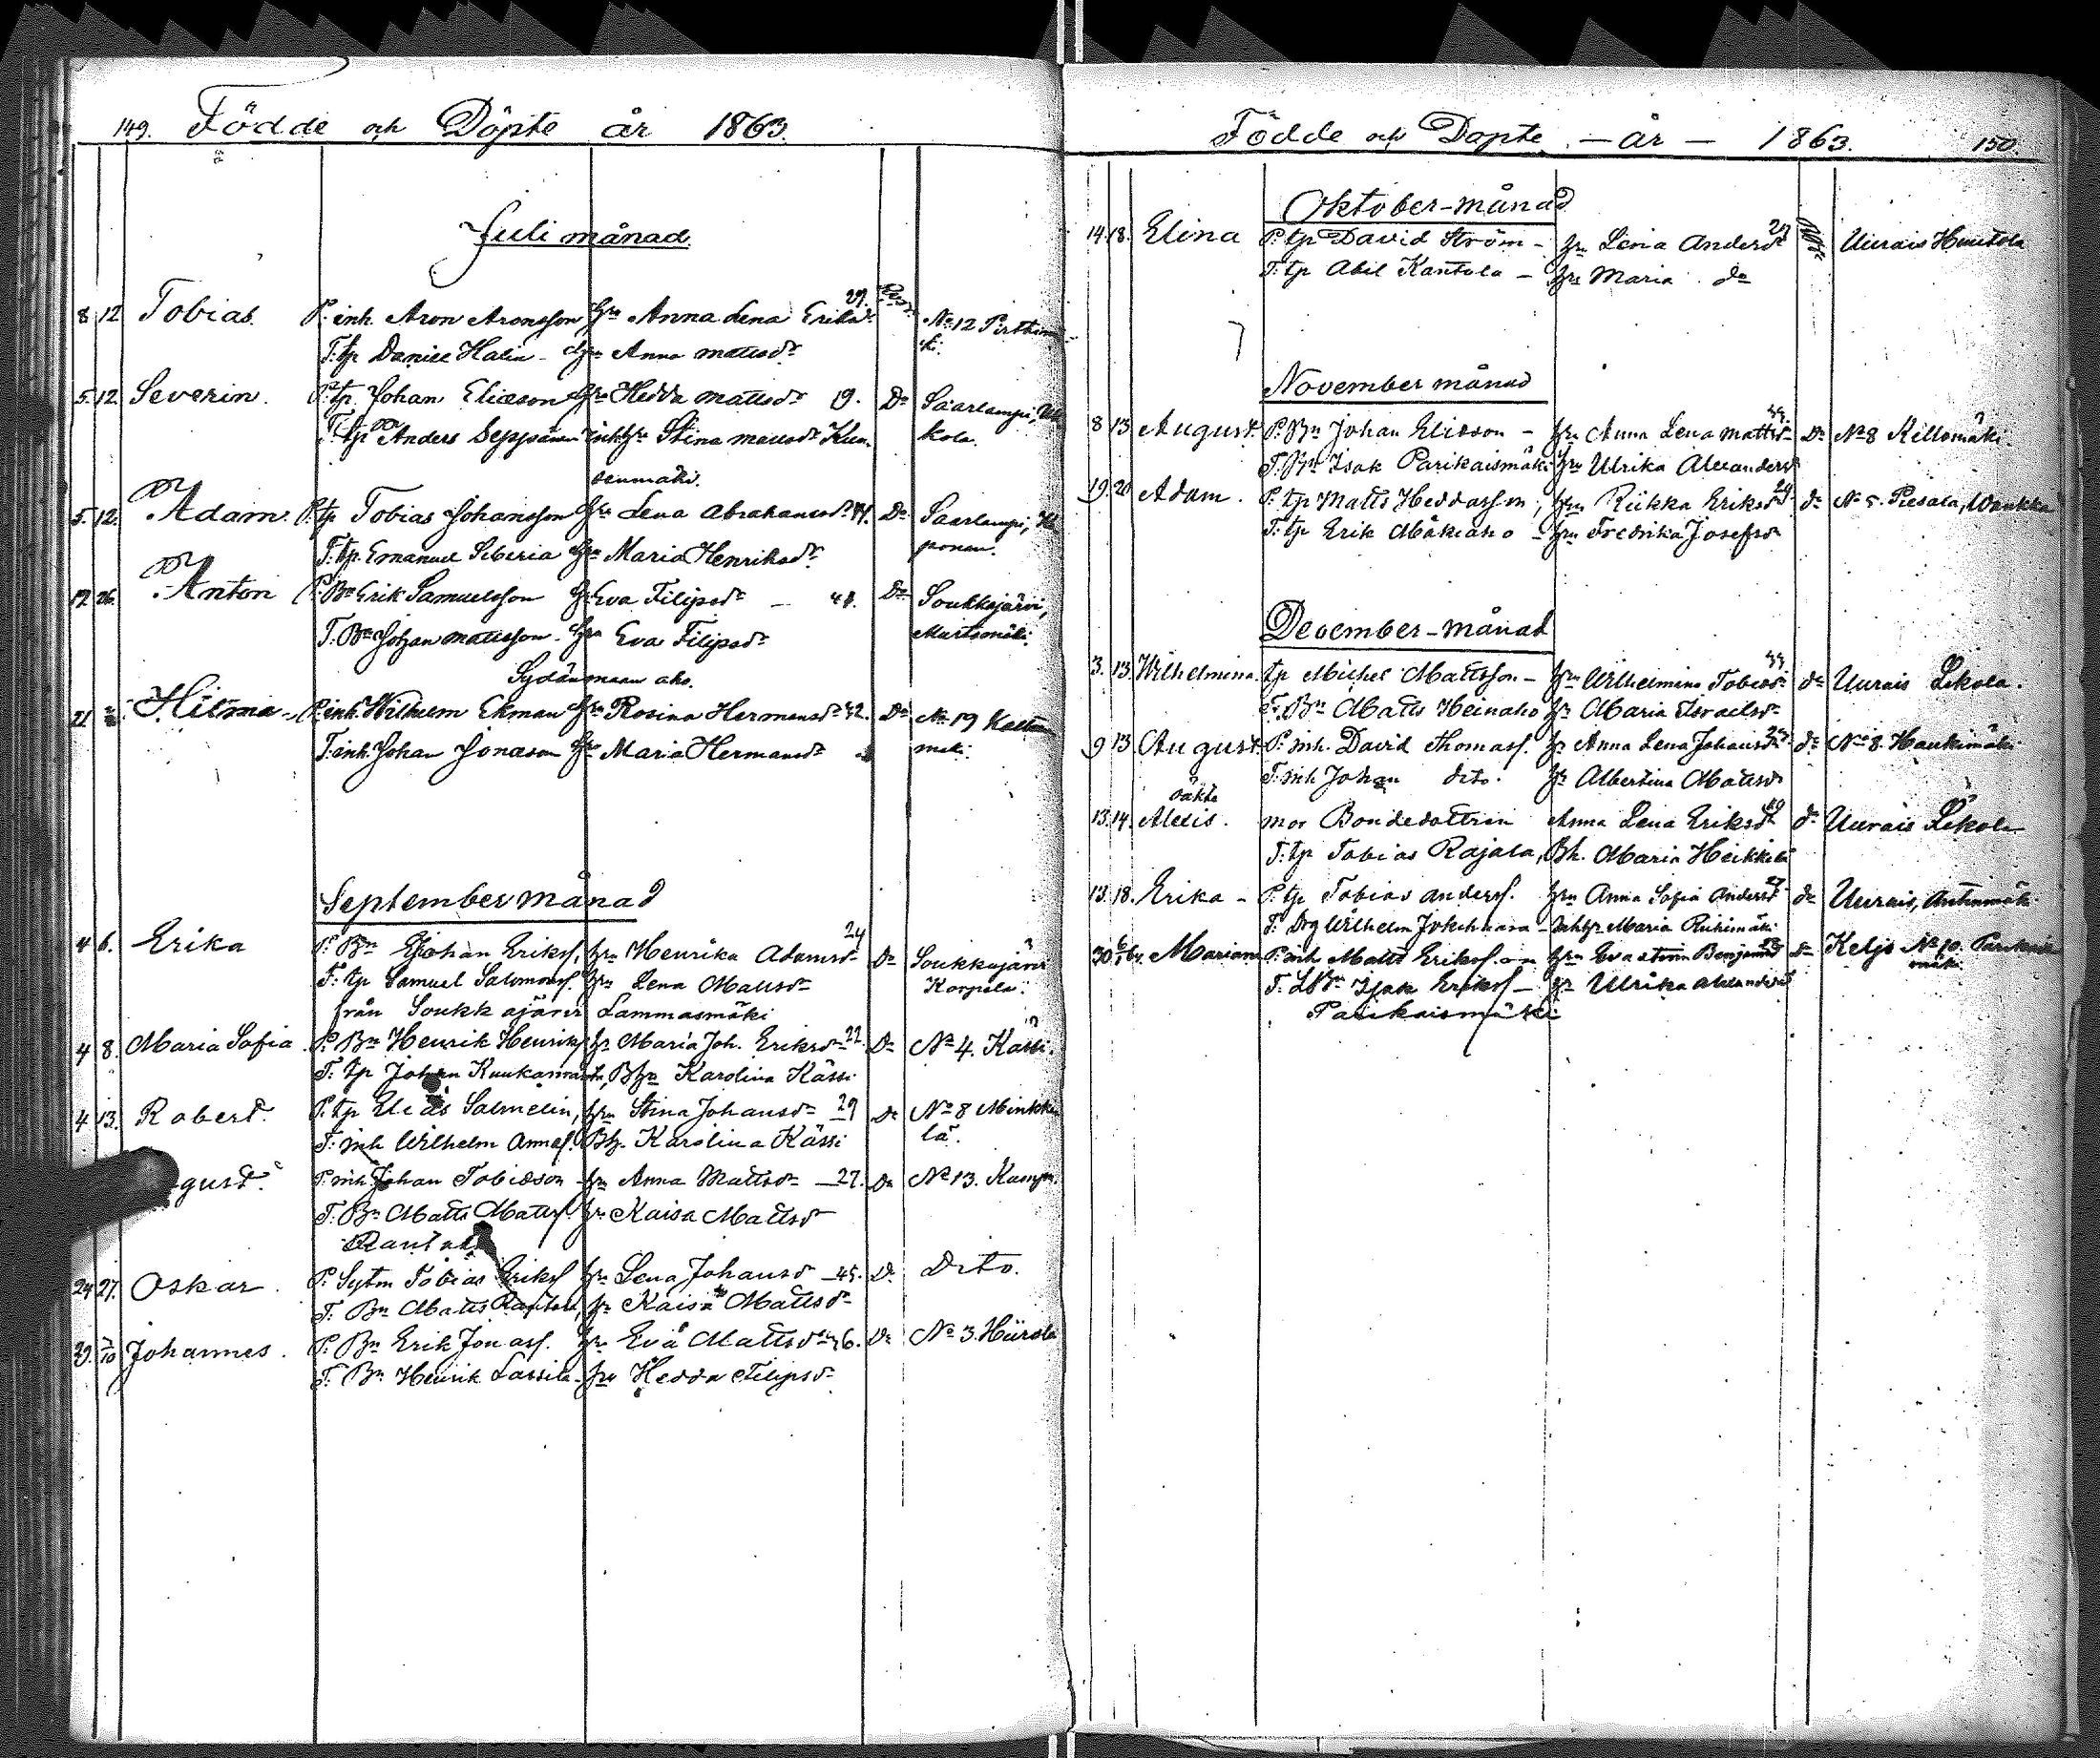 149. Födde och Döpte år 1863.
Juli månad
8 12 Tobias. P. inh. Aron Aronsson Hu Anna Lena Eriksdr 29. No 12 Pirttimä
ki.
T: tp Daniel Halin - Hu Anna Mattsdr
5. 12. Severin. P: tp. Johan Eliasson Hu Hedda Mattsdr 19. Do Saarlampi,
T: tp Anders Seppänen Inh. Hu Stina Mattsdr kola.
5. 12. Adam. P: tp Tobias Johansson Hu Lena Abrahamsdr 44. Do Saarlampi,
T: tp. Emanuel Siberia Hu Maria Henriksdr ponen.
17. 26. Anton P: Bn Erik Samuelsson Hu Eva Filipsdr - 41. Do Soukkojärvi,
T. Bn Johan Mattsson. Hu Eva Filipsdr
Sydänmaan aho.
21. Hilma - P. inh. Wilhelm Ekman Hu Rosina Hermansdr 42. Do No 19
T. inh. Johan Jonasson Hu Maria Hermansdr mäki.
September månad
4 6. Erika P. Bn Johan Eriks., hu Henrika Adamsdr 24 Do Soukkojärvi
T: tp Samuel Salomons. hu Lena Mattsdr Korpela.
från Soukkojärvi Lammasmäki
4 8. Maria Sofia. P. Bn Henrik Henriks hu Maria Joh. Eriksdr 22. Do No 4. Kässi.
T: tp Johan Bhu Karolina Kässi
4 13. Robert. P. tp Elias Salmelin, hu Stina Johansdr 29 Do No 8 Minkki
T: inh Wilhelm Annas. Bh. Karolina Kässi la.
gust. P. inh Johan Tobiasson - hu Anna Mattsdr - 27. Do No 13.
T. Bn Matts Matts. hu Kaisa Mattsdr
24 27. Oskar. P. Sytm Tobias Eriks hu Lena Johansdr - 45. D. Dito.
T. Bn Matts Rantala, hu Kaisa Mattsdr
29. Johannes. P. Bn Erik Jonass. hu Eva Mattsdr 26. Do No 3. Hiirola
T. Bn Henrik Lassila - hu Hedda Filipsdr
Födde och Döpte - år - 1863. 150.
Oktober-månad
14 18. Elina P. tp David Ström - hu Lena Andersdr 27 Uurais
T. tp Abel Kantola - hu Maria do
November månad
8 13 August. P. Bn Johan Eliasson - hu Anna Lena Mattsdr Do No 8 Kellomäki.
T. Bn Isak Parikaismäki hu Ulrika Alexandersdr
19. 20 Adam. P. tp Matts Heddasson; hu Riikka Eriksdr do No 5. Piesala,
T. tp Erik Mäkiaho - hu Fredrika Josefsdr
December-månad
3. 13 Wilhelmina. tp Michel Mattsson - hu Wilhelmina Tobiasdr do Uurais Lekola.
T. Bn Matts Heinaho hu Maria Israelsdr
9 13. August. P. inh. David Thomass. hu Anna Lena Johansdr do No 8. Haukimäki
T. inh Johan dito. hu Albertina Mattsdr
oäkta
13. 14. Alexis. mor Bondedottren Anna Lena Eriksdr do Uurais Lekola
T: tp Tobias Rajala, Bh. Maria Heikkilä
13. 18. Erika - P. tp Tobias Anderss. hu Anna Sofia Andersdr do Uurais,
T. Drg Wilhelm - Inhhu Maria Riihimäki
30 Mariana P. inh Matts Eriksson hu Eva Stina do Keljo No 10. Parikais
mäki.
T. Isak Eriks - hu Ulrika Alexandersdr
Parikaismäki